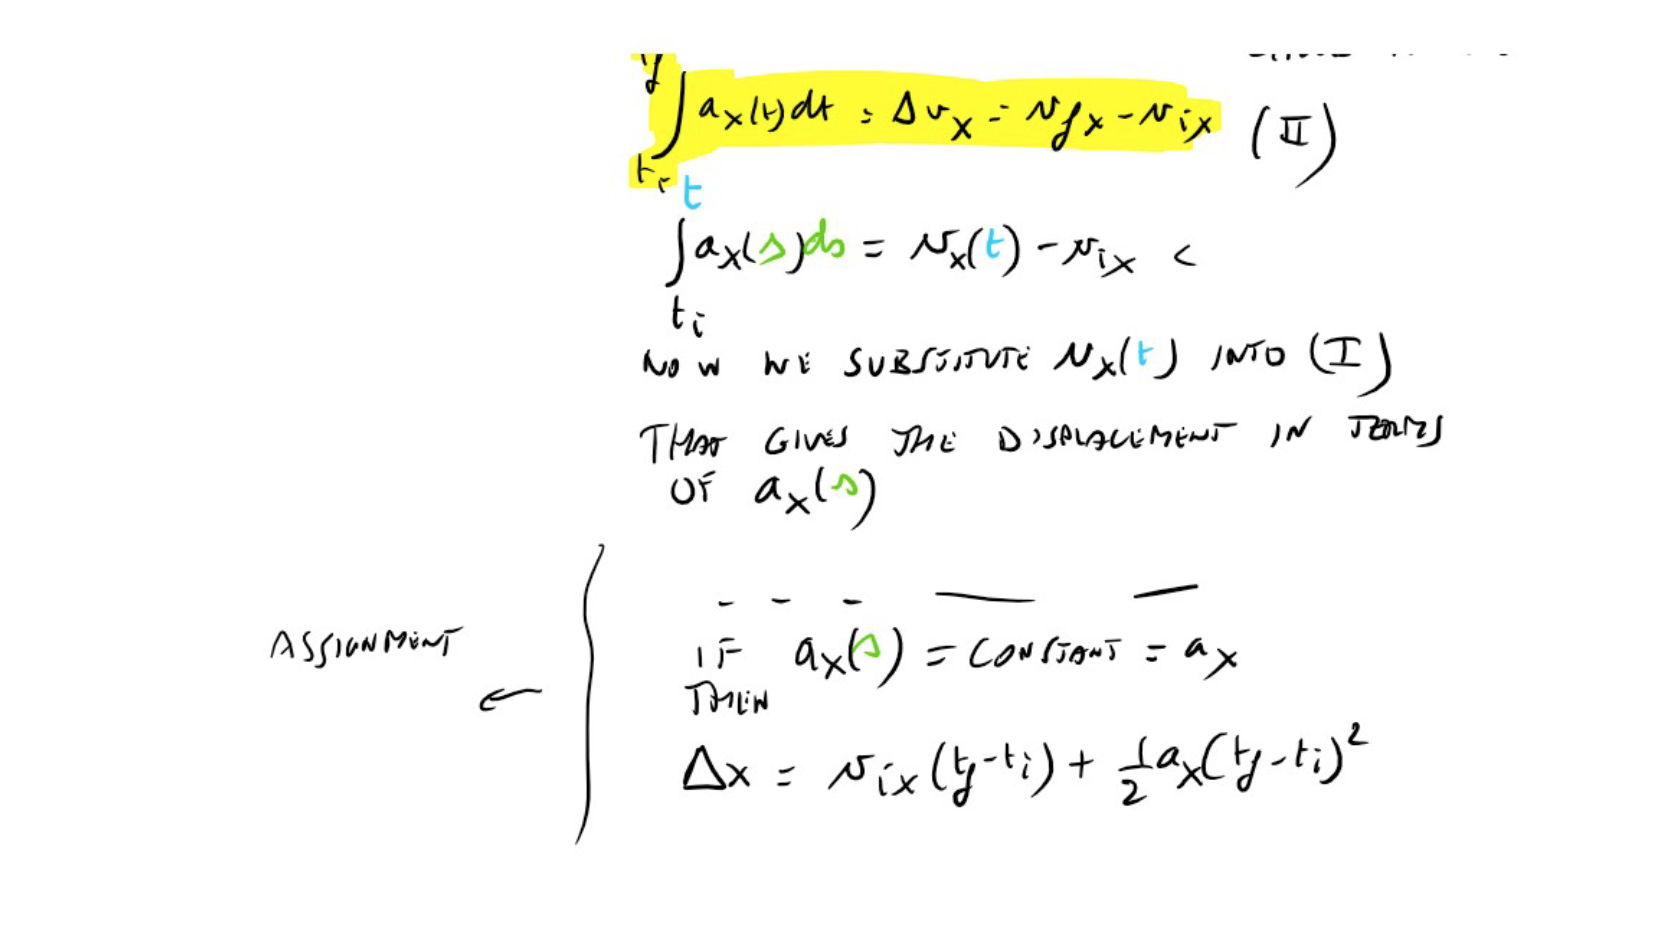 t_f
∫ a_x(t)dt = Δv_x = v_fx - v_ix (II)
t_i
t
∫ a_x(s)ds = v_x(t) - v_ix <
t_i
NOW WE SUBSTITUTE v_x(t) INTO (I)
THAT GIVES THE DISPLACEMENT IN TERMS
OF a_x(s)
IF a_x(s) = CONSTANT = a_x
ASSIGNMENT
THEN
←
Δx = v_ix (t_f - t_i) + 1/2 a_x (t_f - t_i)^2